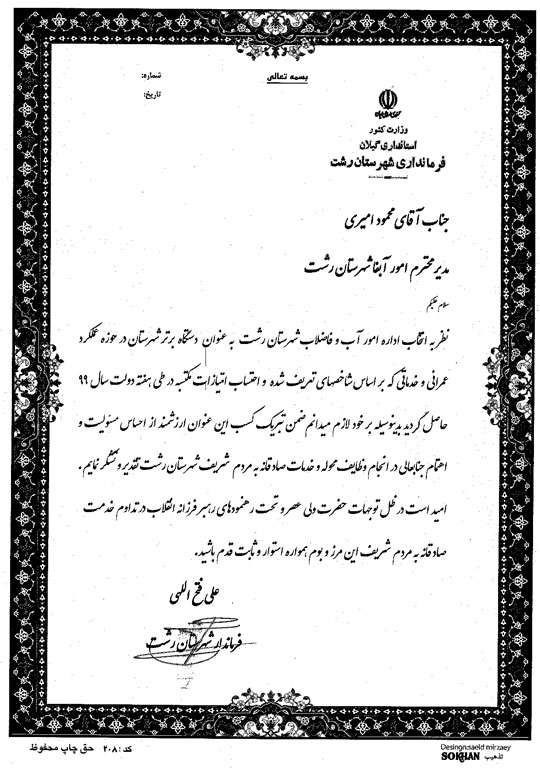 بسمه تعالی
شماره:
تاریخ:
وزارت کشور
استانداری گیلان
فرمانداری شهرستان رشت
جناب آقای محمود امیری
مدیر محترم امور آبفا شهرستان رشت
سلام علیکم
نظر به انتخاب اداره امور آب و فاضلاب شهرستان رشت به عنوان دستگاه برتر شهرستان در حوزه عملکرد
عمرانی و خدماتی که بر اساس شاخصهای تعریف شده و احتساب امتیازات مکتسبه در طی هفته دولت سال ۹۹
حاصل گردید بدینوسیله بر خود لازم میدانم ضمن تبریک کسب این عنوان ارزشمند از احساس مسئولیت و
اهتمام جنابعالی در انجام وظایف محوله و خدمات صادقانه به مردم شریف شهرستان رشت تقدیر و تشکر نمایم.
امید است در ظل توجهات حضرت ولی عصر و تحت رهنمودهای رهبر فرزانه انقلاب در تداوم خدمت
صادقانه به مردم شریف این مرز و بوم همواره استوار و ثابت قدم باشید.
علی فتح اللهی
فرماندار شهرستان رشت
کد: ۲۰۸ حق چاپ محفوظ
Desingn:saeid mirzaey
SOKHAN تذهیب